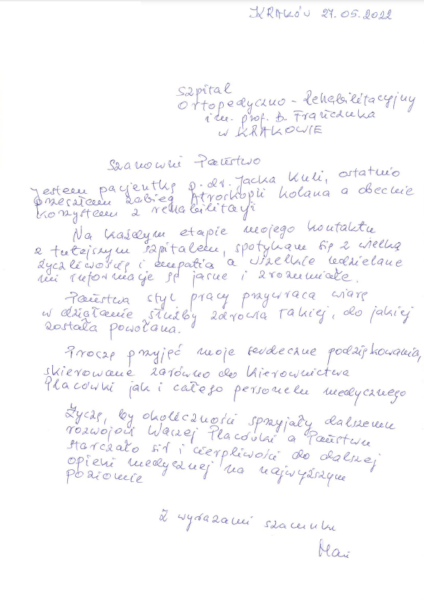 KRAKÓW 27.05.2022
Szpital
Ortopedyczno - Rehabilitacyjny
im. prof. B. Frańczuka
w KRAKOWIE
Szanowni Państwo
Jestem pacjentką p. dr. Jacka Kuli, ostatnio
przeszłam zabieg Atroskopii kolana a obecnie
korzystam z rehabilitacji
Na każdym etapie mojego kontaktu
z tutejszym szpitalem, spotykam się z wielką
życzliwością i empatią a wszelkie udzielane
mi informacje są jasne i zrozumiałe.
Państwa styl pracy przywraca wiarę
w działanie służby zdrowia takiej, do jakiej
została powołana.
Proszę przyjąć moje serdeczne podziękowania,
skierowane zarówno do kierownictwa
Placówki jak i całego personelu medycznego
Życzę, by okoliczności sprzyjały dalszemu
rozwojowi Waszej Placówki a Państwu
starczało sił i cierpliwości do dalszej
opieki medycznej na najwyższym
poziomie
Z wyrazami szacunku